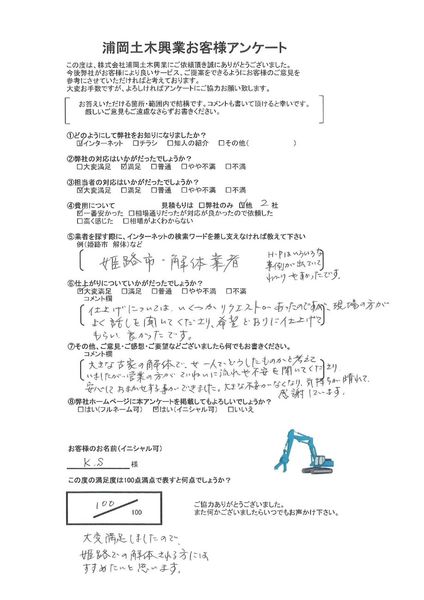 浦岡土木興業お客様アンケート
この度は、株式会社浦岡土木興業にご依頼頂き誠にありがとうございました。
今後弊社がお客様により良いサービス、ご提案をできるようにお客様のご意見を
参考にさせていただければと考えております。
大変お手数ですが、よろしければアンケートにご協力お願い致します。
お答えいただける箇所・範囲内で結構です。コメントも書いて頂けると幸いです。
厳しいご意見もご遠慮なさらずお書きください。
①どのようにして弊社をお知りになりましたか？
☑インターネット □チラシ □知人の紹介 □その他( )
②弊社の対応はいかがだったでしょうか？
□大変満足 ☑満足 □普通 □やや不満 □不満
③担当者の対応はいかがだったでしょうか？
□大変満足 ☑満足 □普通 □やや不満 □不満
④費用について 見積もりは □弊社のみ ☑他 2 社
☑一番安かった □相場通りだったが対応が良かったので依頼した
□高く感じた □相場がよくわからない
⑤業者を探す際に、インターネットの検索ワードを差し支えなければ教えて下さい
例(姫路市 解体)など
姫路市・解体業者
H・Pはいろいろな
事例が出ていて
わかりやすかったです。
⑥仕上がりについていかがだったでしょうか？
☑大変満足 □満足 □普通 □やや不満 □不満
コメント欄
仕上げについては、いくつかリクエストがあったのですが、現場の方が
よく話しを聞いてくださり、希望どおりに仕上げて
もらい、良かったです。
⑦その他、ご意見・ご感想・ご要望などございましたら何でもお書きください
コメント欄
大きな古家の解体で、女一人で、どうしたものかと考えて
いましたが、営業の方がていねいに流れや不安を聞いてくださり
安心しておまかせする事ができました。大きな不安がなくなり、気持ちが晴れて、
感謝しています。
⑧弊社ホームページに本アンケートを掲載してもよろしいでしょうか？
□はい(フルネーム可) ☑はい(イニシャル可) □いいえ
お客様のお名前(イニシャル可)
K.S 様
この度の満足度は100点満点で表すと何点でしょうか？
100
100
ご協力ありがとうございました。
また何かございましたらいつでもお声かけ下さい。
大変満足しましたので、
姫路での解体される方には、
すすめたいと思います。